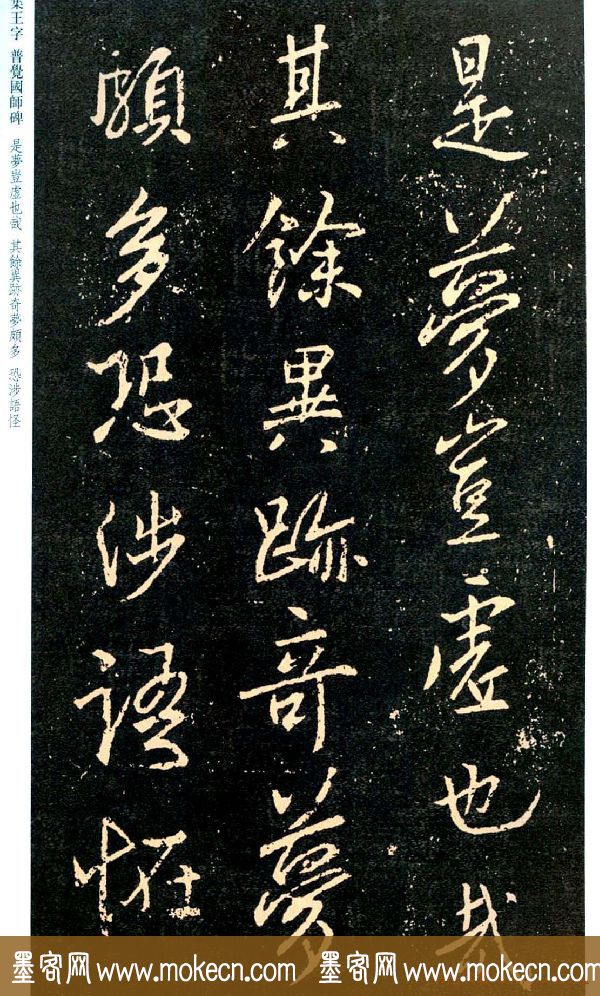 是夢豈虛也哉
其餘異跡奇夢
頗多恐涉語怪
集王字 普覺國師碑 是夢豈虛也哉 其餘異跡奇夢頗多 恐涉語怪
墨客网 www.mokecn.com 墨客网 www.mokecn.com